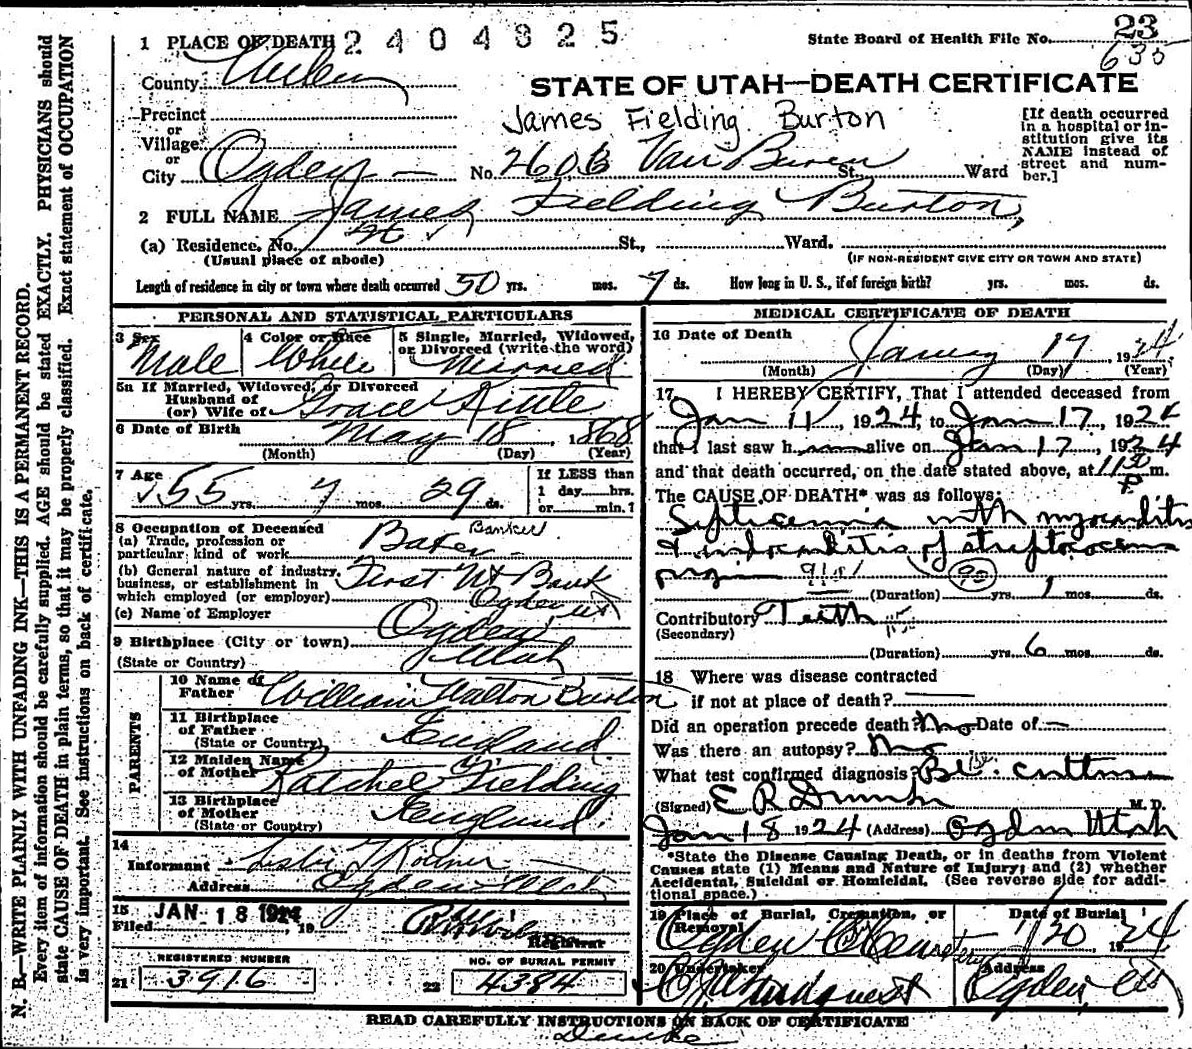 1 PLACE OF DEATH 2404825
State Board of Health File No. 23
635
County Weber
STATE OF UTAH—DEATH CERTIFICATE
Precinct
or
Village
or
City Ogden
James Fielding Burton
No. 2606 Van Buren St. Ward
[If death occurred
in a hospital or in-
stitution give its
NAME instead of
street and num-
ber.]
2 FULL NAME James Fielding Burton,
(a) Residence, No. St., Ward.
(Usual place of abode)
(IF NON-RESIDENT GIVE CITY OR TOWN AND STATE)
Length of residence in city or town where death occurred 50 yrs. mos. 7 ds. How long in U. S., if of foreign birth? yrs. mos. ds.
PERSONAL AND STATISTICAL PARTICULARS
3 Sex Male
4 Color or Race White
5 Single, Married, Widowed,
or Divorced (write the word)
Married
5a If Married, Widowed, or Divorced
Husband of
(or) Wife of Grace Kittle
6 Date of Birth May 18, 1868
(Month) (Day) (Year)
7 Age 55 yrs. 7 mos. 29 ds.
If LESS than
1 day hrs.
or min.?
8 Occupation of Deceased
(a) Trade, profession or
particular kind of work
Banker
(b) General nature of industry,
business, or establishment in
which employed (or employer) First Nt Bank
Ogden Ut
(c) Name of Employer
9 Birthplace (City or town) Ogden
(State or Country) Utah
PARENTS
10 Name of
Father William Walton Burton
11 Birthplace
of Father
(State or Country) England
12 Maiden Name
of Mother Ratchel Fielding
13 Birthplace
of Mother
(State or Country) England
14
Informant
Address Ogden Utah
15
Filed JAN 18 1924, 19
Registrar
REGISTERED NUMBER
21 3916
NO. OF BURIAL PERMIT
22 4384
MEDICAL CERTIFICATE OF DEATH
16 Date of Death
17, 1924
(Month) (Day) (Year)
17 I HEREBY CERTIFY, That I attended deceased from
Jan 11, 1924, to Jan 17, 1924
that I last saw h alive on Jan 17, 1924
and that death occurred, on the date stated above, at 11 30 P m.
The CAUSE OF DEATH* was as follows:
Septicemia with myocarditis
& endocarditis of streptococcus
origin
(Duration) yrs. 1 mos. ds.
Contributory Teeth
(Secondary)
(Duration) yrs. 6 mos. ds.
18 Where was disease contracted
if not at place of death?
Did an operation precede death? No Date of —
Was there an autopsy? No
What test confirmed diagnosis?
(Signed) E R M. D.
Jan 18 1924 (Address) Ogden Utah
*State the Disease Causing Death, or in deaths from Violent
Causes state (1) Means and Nature of Injury; and (2) whether
Accidental, Suicidal or Homicidal. (See reverse side for addi-
tional space.)
19 Place of Burial, Cremation, or
Removal
Ogden
Date of Burial
1/20, 1924
20 Undertaker
Lindquist
Address
Ogden Ut
READ CAREFULLY INSTRUCTIONS ON BACK OF CERTIFICATE
N. B.—WRITE PLAINLY WITH UNFADING INK—THIS IS A PERMANENT RECORD.
Every item of information should be carefully supplied. AGE should be stated EXACTLY. PHYSICIANS should
state CAUSE OF DEATH in plain terms, so that it may be properly classified. Exact statement of OCCUPATION
is very important. See instructions on back of certificate.